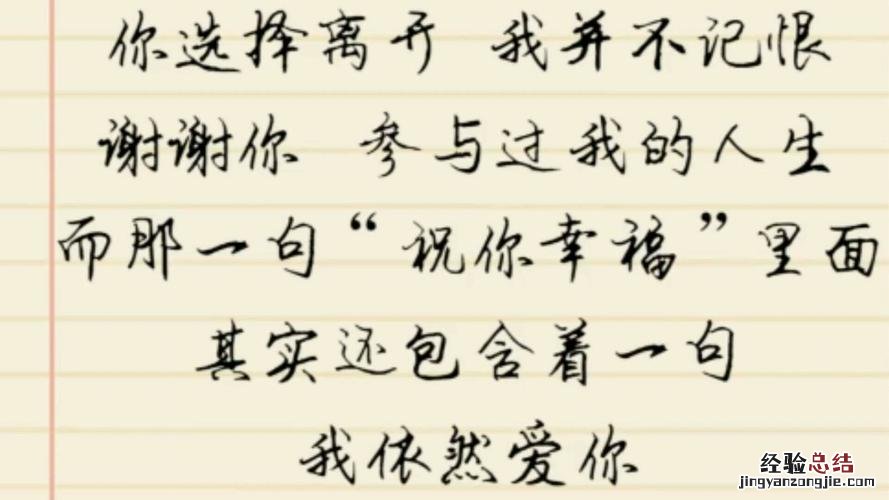 你选择离开 我并不记恨
谢谢你 参与过我的人生
而那一句“祝你幸福”里面
其实还包含着一句
我依然爱你
经验总结
jingyanzongjie.com